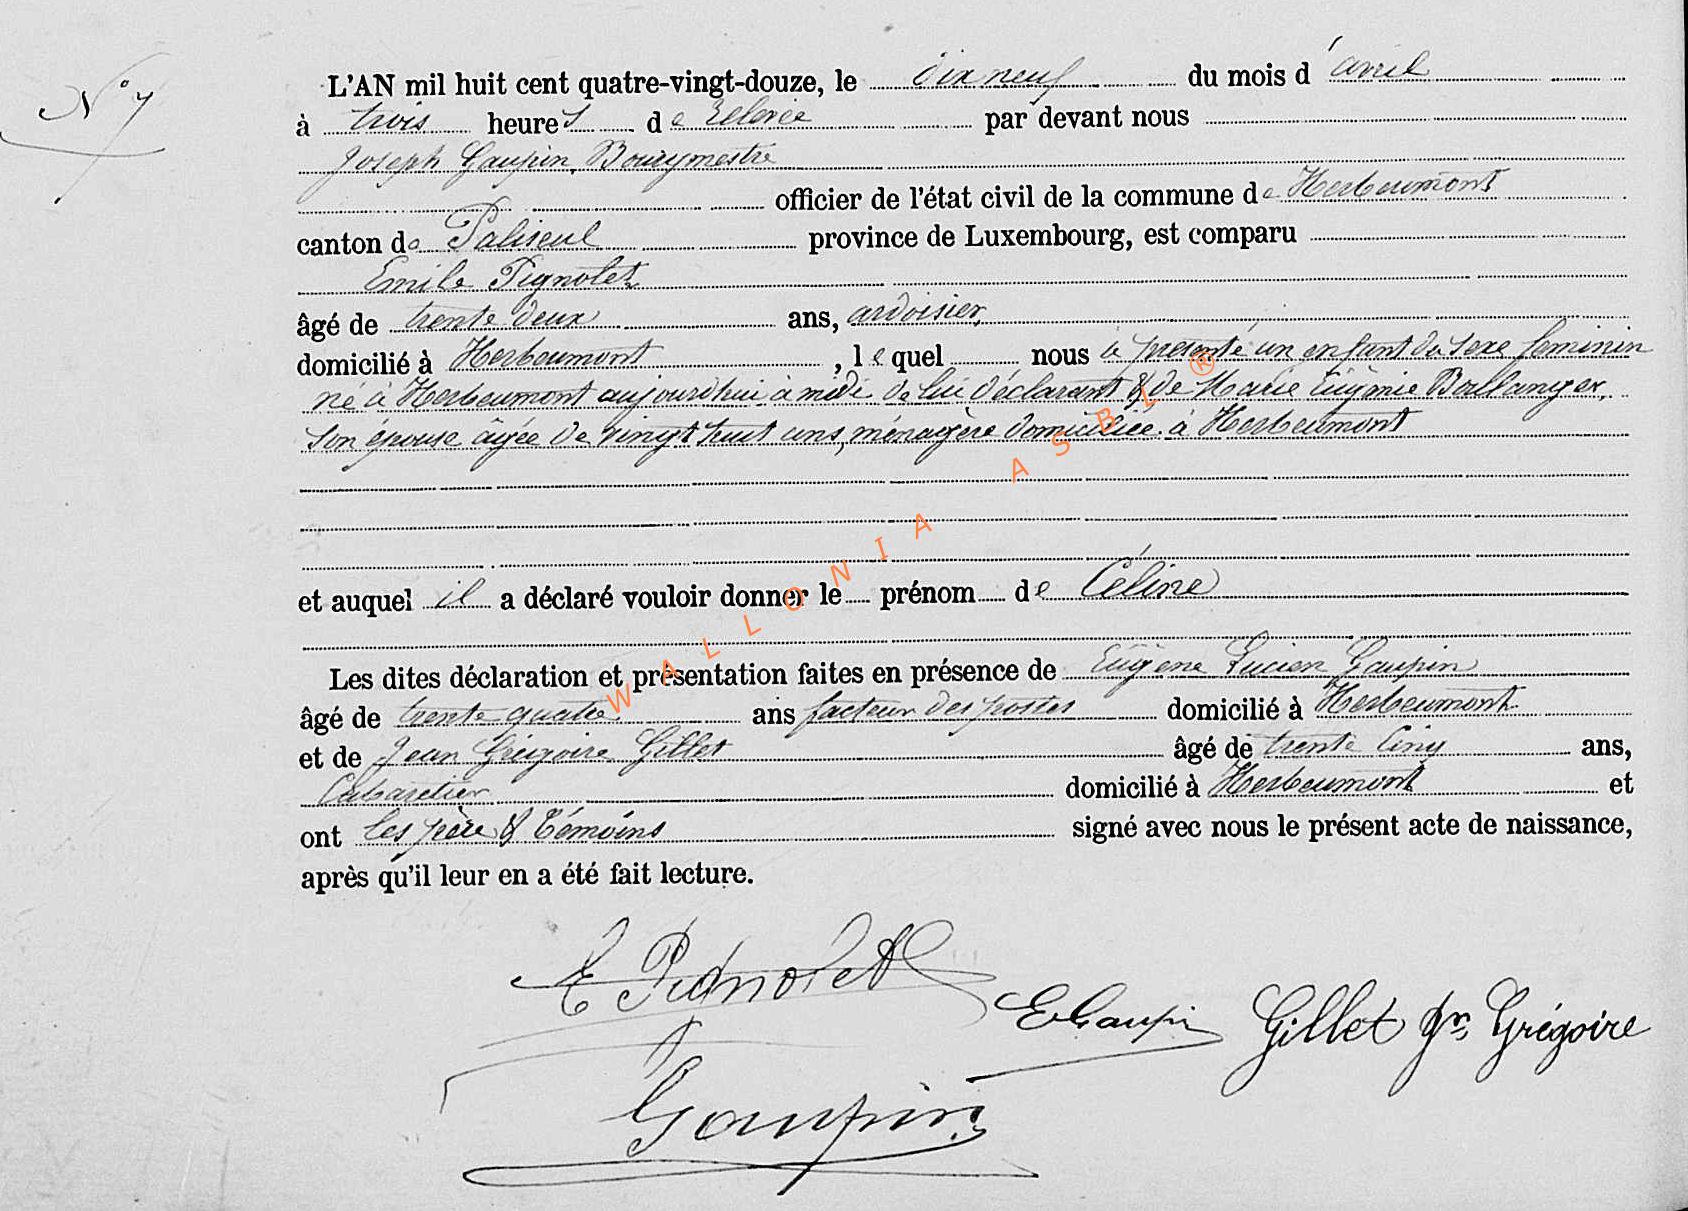 N° 7
L'AN mil huit cent quatre-vingt-douze, le dix neuf du mois d'avril
à trois heures de relevée par devant nous
Joseph Gaupin, Bourgmestre
officier de l'état civil de la commune de Herbeumont
canton de Paliseul province de Luxembourg, est comparu
Emile Pignolet
âgé de trente deux ans, ardoisier,
domicilié à Herbeumont, lequel nous a présenté un enfant du sexe féminin
né à Herbeumont aujourd'hui à midi de lui déclarant & de Marie Eugénie Boullanger,
son épouse âgée de vingt huit ans, ménagère domiciliée à Herbeumont
et auquel il a déclaré vouloir donner le prénom de Céline
Les dites déclaration et présentation faites en présence de Eugène Lucien Gaupin
âgé de trente quatre ans facteur des postes domicilié à Herbeumont
et de Jean Grégoire Gillet âgé de trente cinq ans,
Cabaretier domicilié à Herbeumont et
ont les père & témoins signé avec nous le présent acte de naissance,
après qu'il leur en a été fait lecture.
E Pignolet
E Gaupin
Gillet Jn Grégoire
J Gaupin
WALLONIA ASBL ®